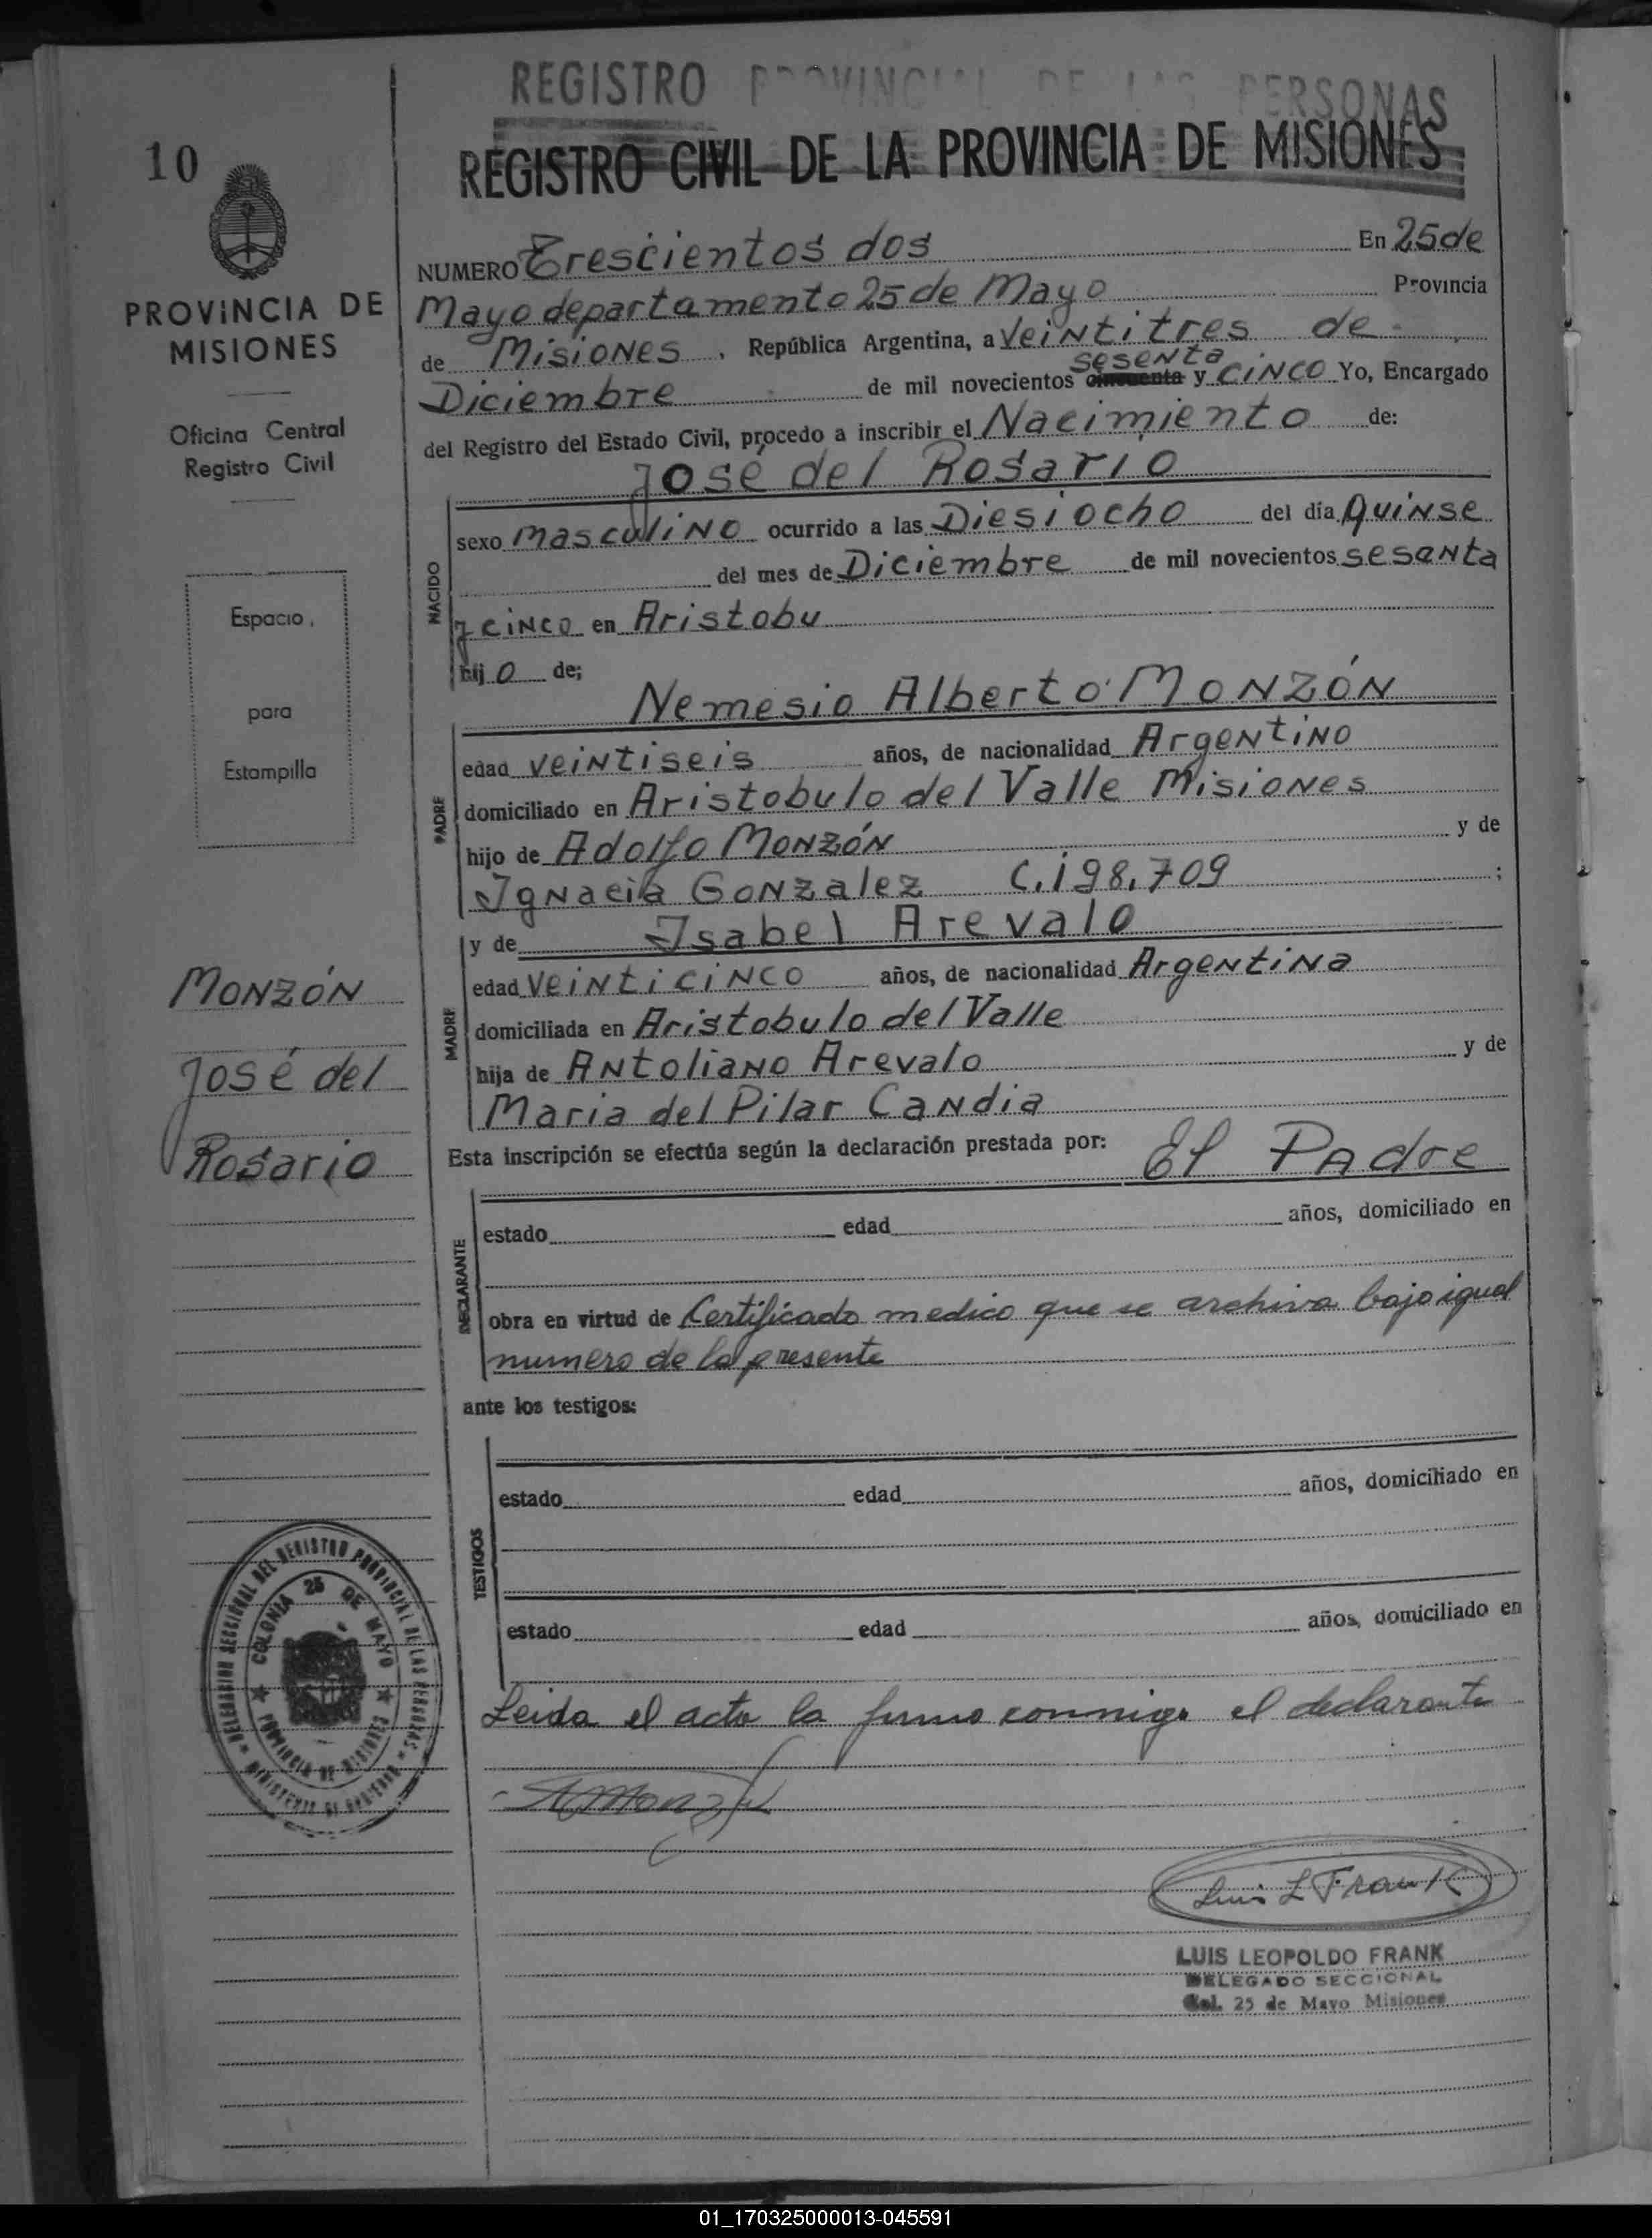 REGISTRO PROVINCIAL DE LAS PERSONAS
REGISTRO CIVIL DE LA PROVINCIA DE MISIONES
10
PROVINCIA DE
MISIONES
Oficina Central
Registro Civil
Espacio
para
Estampilla
MONZÓN
José del
Rosario
NUMERO Trescientos dos En 25 de
Mayo departamento 25 de Mayo Provincia
de Misiones, República Argentina, a Veintitres de
sesenta
Diciembre de mil novecientos cincuenta y CINCO Yo, Encargado
del Registro del Estado Civil, procedo a inscribir el Nacimiento de:
José del Rosario
NACIDO
sexo masculino ocurrido a las Diesiocho del día Quinse
del mes de Diciembre de mil novecientos sesenta
y cinco en Aristobu
hijo de;
Nemesio Alberto MONZÓN
PADRE
edad veintiseis años, de nacionalidad Argentino
domiciliado en Aristobulo del Valle Misiones
hijo de Adolfo Monzón y de
Ignacia Gonzalez C.I 98.709 ;
y de Isabel Arevalo
MADRE
edad veinticinco años, de nacionalidad Argentina
domiciliada en Aristobulo del Valle
hija de Antoliano Arevalo y de
Maria del Pilar Candia
Esta inscripción se efectúa según la declaración prestada por: El Padre
DECLARANTE
estado edad años, domiciliado en
obra en virtud de Certificado medico que se archiva bajo igual
numero de la presente
ante los testigos:
TESTIGOS
estado edad años, domiciliado en
estado edad años, domiciliado en
Leida el acta la firma conmigo el declarante
DELEGACION SECCIONAL DEL REGISTRO PROVINCIAL DE LAS PERSONAS
MINISTERIO DE GOBIERNO
COLONIA 25 DE MAYO
PROVINCIA DE MISIONES
AMonzón
Luis L Frank
LUIS LEOPOLDO FRANK
DELEGADO SECCIONAL
Col. 25 de Mayo Misiones
01_170325000013-045591